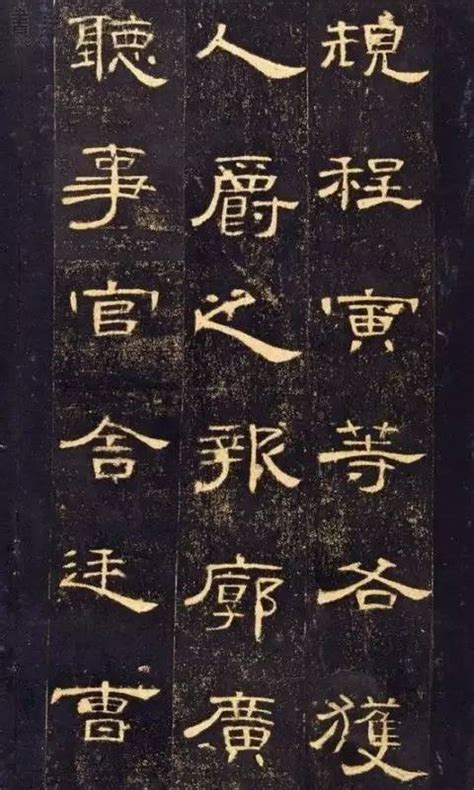 規程寅等各獲
人爵之報廓廣
聽事官舍廷曹